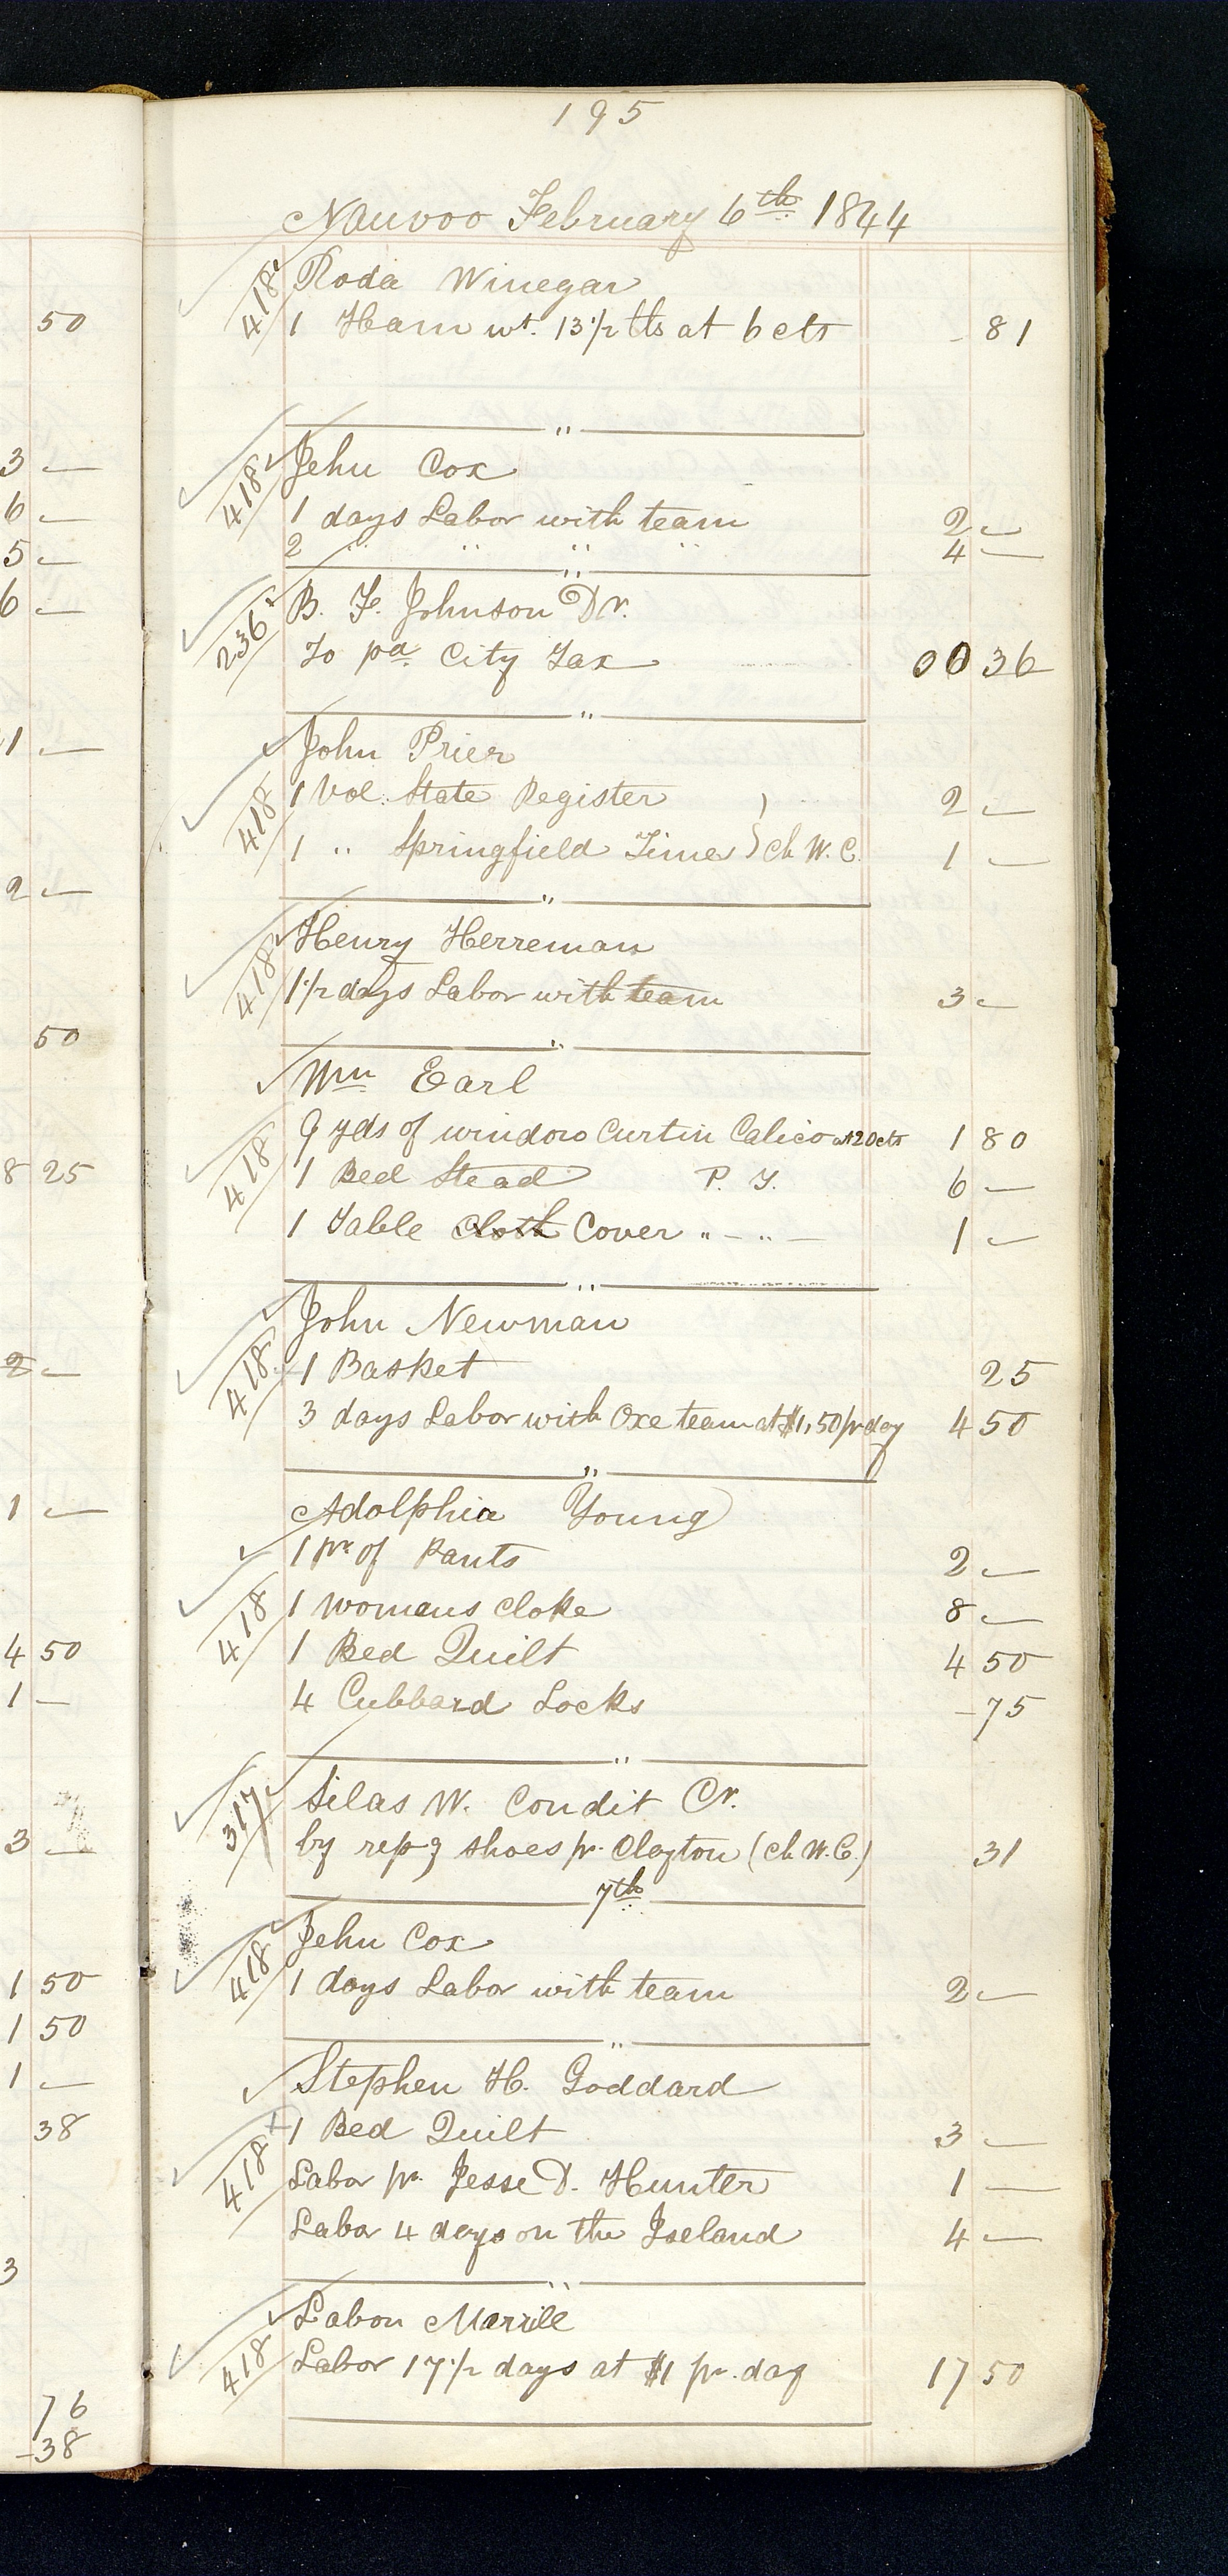 195
Nauvoo February 6th 1844
418 Roda Winegar
1 Ham wt. 13 1/2 lbs at 6 cts - 81
"
418 Jehu Cox
1 days Labor with team 2 —
2 " " " " 4 —
"
236 B. F. Johnson Dr.
To pd. City Tax 00 36
"
John Prier
418 1 Vol. State Register 2 —
1 " Springfield Times } ch W. C. 1 —
"
418 Henry Herreman
1 1/2 days Labor with team 3 —
"
Wm Earl
9 yds of window Curtin Calico at 20 cts 1 80
418 1 Bed Stead P. T. 6 —
1 Table Cloth Cover " — " — 1 —
"
John Newman
418 1 Basket 25
3 days Labor with Oxe team at $1,50 pr day 4 50
"
Adolphia Young
1 pr of Pants 2 —
418 1 Womans Cloke 8 —
1 Bed Quilt 4 50
4 Cubbard Locks - 75
"
317 Silas W. Condit Cr.
by rep'g shoes pr. Clayton (ch W. C.) 31
7th
418 Jehu Cox
1 days Labor with team 2 —
"
Stephen H. Goddard
1 Bed Quilt 3 —
418 Labor pr. Jesse D. Hunter 1 —
Labor 4 days on the Iseland 4 —
"
Labon Merrill
418 Labor 17 1/2 days at $1 pr. day 17 50
50
3 —
6 —
5 —
6 —
1 —
2 —
50
8 25
2 —
1 —
4 50
1 —
3 —
1 50
1 50
1 —
38
3
76
-38